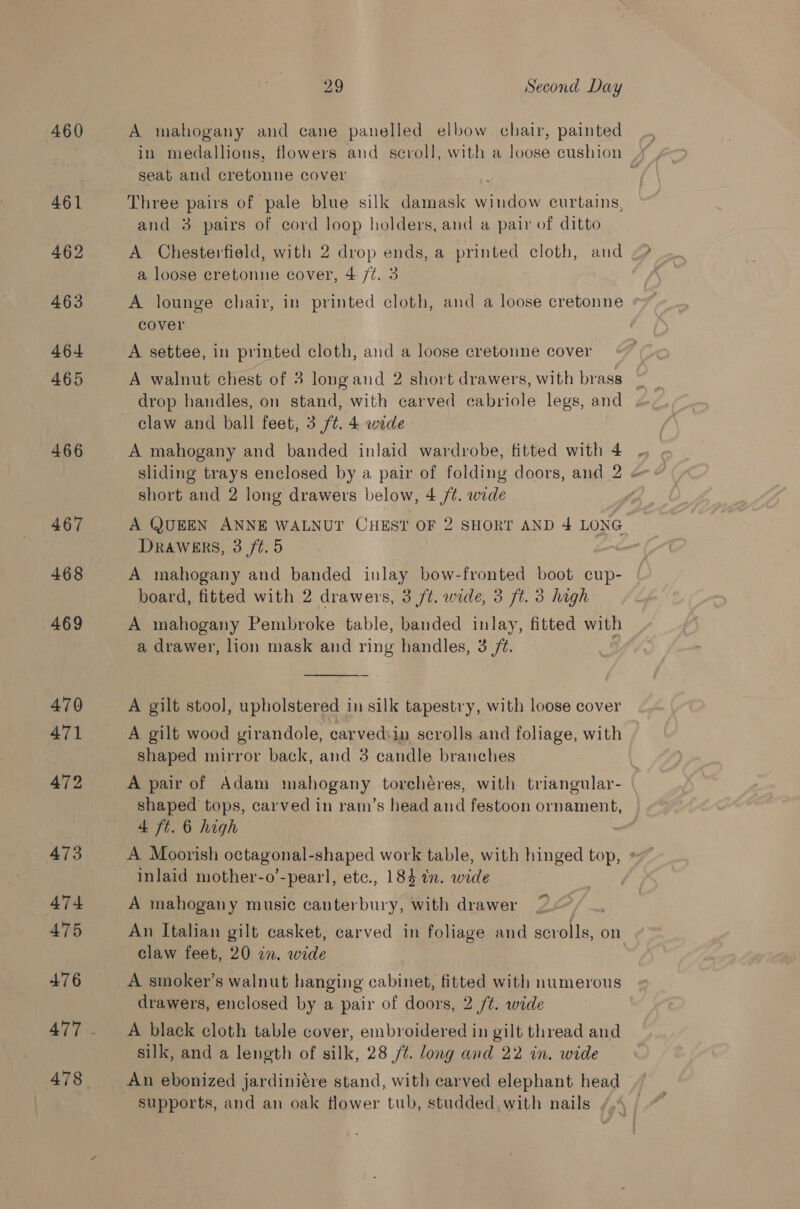 29 Second Day
460 A mahogany and cane panelled elbow chair, painted
in medallions, flowers and scroll, with a loose cushion
seat and cretonne cover
461 Three pairs of pale blue silk damask window curtains,
and 3 pairs of cord loop holders, and a pair of ditto
462 A Chesterfield, with 2 drop ends, a printed cloth, and
a loose cretonne cover, 4 ft. 3
463 A lounge chair, in printed cloth, and a loose cretonne
cover
464 A settee, in printed cloth, and a loose cretonne cover
465 A walnut chest of 3 long and 2 short drawers, with brass
drop handles, on stand, with carved cabriole legs, and
claw and ball feet, 3 ft. 4 wide
466 A mahogany and banded inlaid wardrobe, fitted with 4
sliding trays enclosed by a pair of folding doors, and 2
short and 2 long drawers below, 4 ft. wide
467 A QUEEN ANNE WALNUT CHEST OF 2 SHORT AND 4 LONG
DRAWERS, 3 ft. 5
468 A mahogany and banded inlay bow-fronted boot cup-
board, fitted with 2 drawers, 3 ft. wide, 3 ft. 3 high
469 A mahogany Pembroke table, banded inlay, fitted with
a drawer, lion mask and ring handles, 3 ft.
470 A gilt stool, upholstered in silk tapestry, with loose cover
471 A gilt wood girandole, carved in scrolls and foliage, with
shaped mirror back, and 3 candle branches
472 A pair of Adam mahogany torchères, with triangular-
shaped tops, carved in ram's head and festoon ornament,
4 ft. 6 high
473 A Moorish octagonal-shaped work table, with hinged top,
inlaid mother-o'-pearl, etc., 18½ in. wide
474 A mahogany music canterbury, with drawer
475 An Italian gilt casket, carved in foliage and scrolls, on
claw feet, 20 in. wide
476 A smoker's walnut hanging cabinet, fitted with numerous
drawers, enclosed by a pair of doors, 2 ft. wide
477 A black cloth table cover, embroidered in gilt thread and
silk, and a length of silk, 28 ft. long and 22 in. wide
478 An ebonized jardinière stand, with carved elephant head
supports, and an oak flower tub, studded with nails